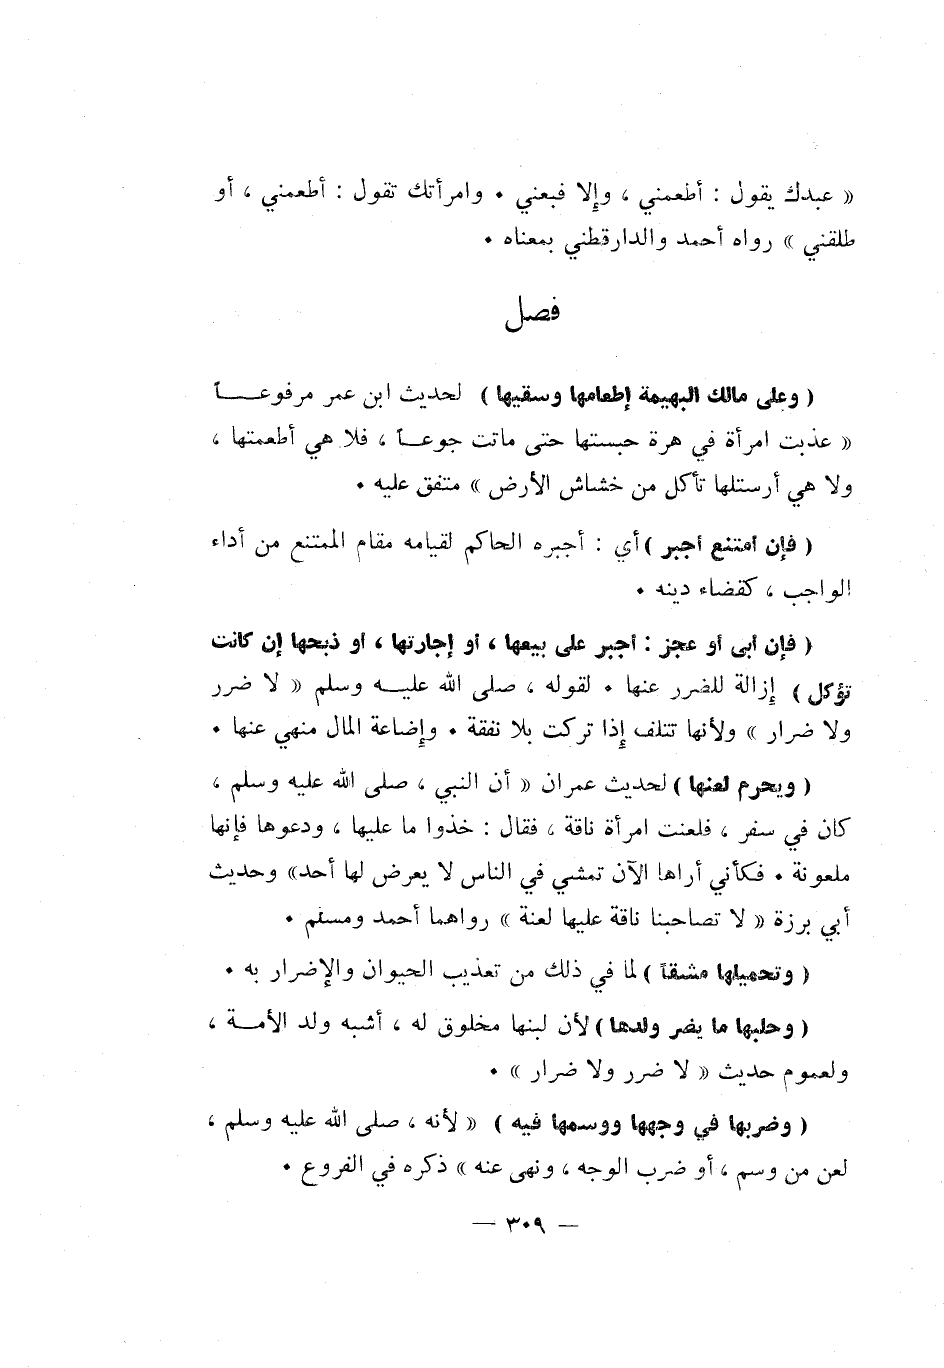 « عبدك يقول : أطعمني ، وإلا فبعني . وامرأتك تقول : أطعمني ، أو
طلقني » رواه أحمد والدارقطني بمعناه .
فصل
( وعلى مالك البهيمة إطعامها وسقيها ) لحديث ابن عمر مرفوعـــاً
« عذبت امرأة في هرة حبستها حتى ماتت جوعـاً ، فلا هي أطعمتها ،
ولا هي أرسلتها تأكل من خشاش الأرض » متفق عليه .
( فإن امتنع أجبر ) أي : أجبره الحاكم لقيامه مقام الممتنع من أداء
الواجب ، كقضاء دينه .
( فإن أبى أو عجز : أجبر على بيعها ، أو إجارتها ، أو ذبحها إن كانت
تؤكل ) إزالة للضرر عنها . لقوله ، صلى الله عليـــه وسلم « لا ضرر
ولا ضرار » ولأنها تتلف إذا تركت بلا نفقة . وإضاعة المال منهي عنها .
( ويحرم لعنها ) لحديث عمران « أن النبي ، صلى الله عليه وسلم ،
كان في سفر ، فلعنت امرأة ناقة ، فقال : خذوا ما عليها ، ودعوها فإنها
ملعونة . فكأني أراها الآن تمشي في الناس لا يعرض لها أحد» وحديث
أبي برزة « لا تصاحبنا ناقة عليها لعنة » رواهما أحمد ومسلم .
( وتحميلها مشقاً ) لما في ذلك من تعذيب الحيوان والإضرار به .
( وحلبها ما يضر ولدها ) لأن لبنها مخلوق له ، أشبه ولد الأمـــة ،
ولعموم حديث « لا ضرر ولا ضرار » .
( وضربها في وجهها ووسمها فيه ) « لأنه ، صلى الله عليه وسلم ،
لعن من وسم ، أو ضرب الوجه ، ونهى عنه » ذكره في الفروع .
— ٣٠٩ —